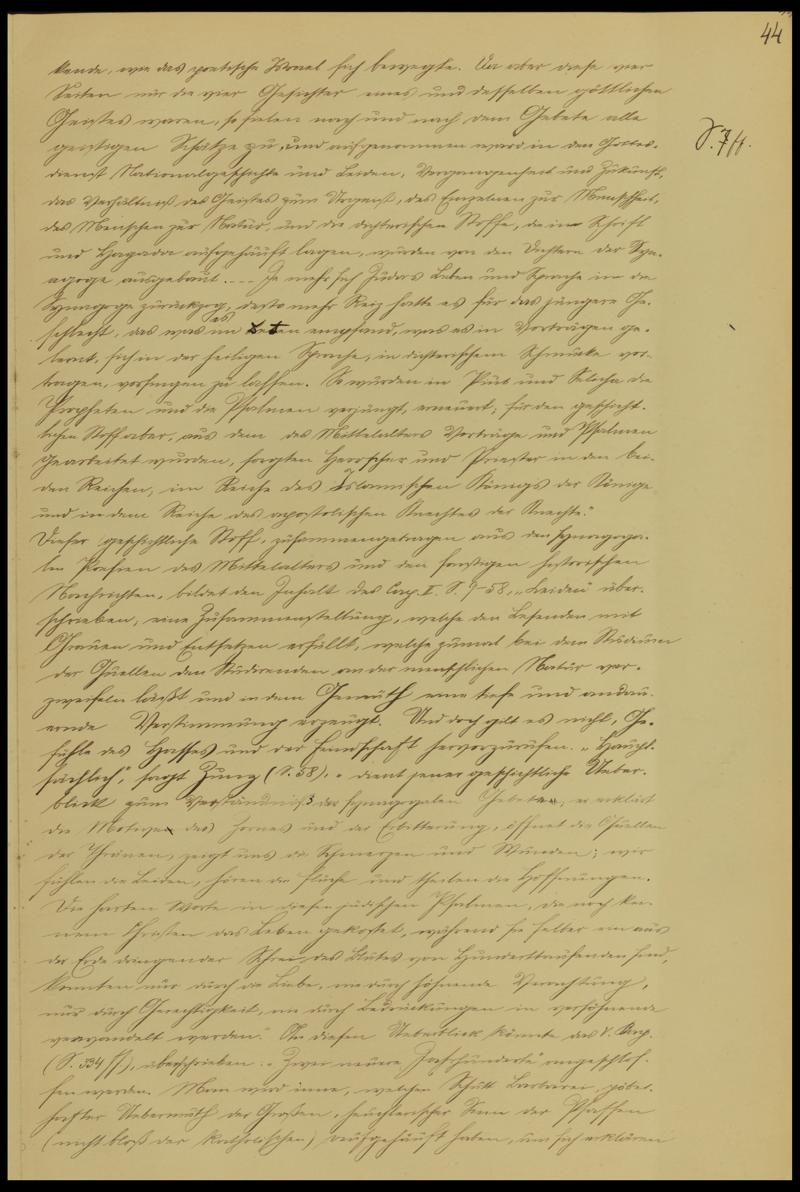 44
kende, wie das poetische Israel sich bewegte. Da aber diese vier
Seiten nur die vier Gesichter eines und desselben göttlichen
Geistes waren, so fielen nach und nach dem Gebete alle
S. 7 ff.
geistigen Schätze zu, und aufgenommen ward in den Gottes-
dienst Nationalgeschichte und Leiden, Vergangenheit und Zukunft,
das Verhältniß des Geistes zum Urgeist, des Einzelnen zur Menschheit,
des Menschen zur Natur, und die dichterischen Stoffe, die in Schrift
und Hagada aufgehäuft lagen, wurden von den Dichtern der Syn-
agoge ausgebaut .... Je mehr sich Juda's Leben und Sprache in die
Synagoge zurückzog, desto mehr Reiz hatte es für das jüngere Ge-
schlecht, das was es im Beten empfand, was es in Vorträgen ge-
lernt, sich in der heiligen Sprache, in dichterischem Schmucke vor-
tragen, vorsingen zu lassen. So wurden in Piut und Selicha die
Propheten und die Psalmen verjüngt, erneuert; für den geschicht-
lichen Stoff aber, aus dem des Mittelalters Vorträge und Psalmen
gearbeitet wurden, sorgten Herrscher und Priester in den bei-
den Reichen, im Reiche des islamischen Königs der Könige
und in dem Reiche des apostolischen Knechtes der Knechte."
Dieser geschichtliche Stoff, zusammengetragen aus den synagoga-
len Poesien des Mittelalters und den sonstigen historischen
Nachrichten, bildet den Inhalt des Cap. II. S. 9-58, "Leiden" über-
schrieben, eine Zusammenstellung, welche den Lesenden mit
Grauen und Entsetzen erfüllt, welche zumal bei dem Studium
der Quellen den Studirenden an der menschlichen Natur ver-
zweifeln läßt und in dem Gemüth eine tiefe und andau-
ernde Verstimmung erzeugt. Und doch gilt es nicht, Ge-
fühle des Hasses und der Feindschaft hervorzurufen. "Haupt-
sächlich", sagt Zunz (S. 58), "dient jener geschichtliche Ueber-
blick zum Verständniß der synagogalen Gebete, er erklärt
die Motive des Zornes und der Erbitterung, öffnet die Quellen
der Thränen, zeigt uns die Schmerzen und Wunden; wir
fühlen die Leiden, hören die Flüche und theilen die Hoffnungen.
Die harten Worte in diesen jüdischen Psalmen, die noch kei-
nem Christen das Leben gekostet, während sie selber ein aus
der Erde dringender Schrei des Blutes von Hunderttausenden sind,
konnten nur durch die Liebe, nie durch höhnende Verachtung,
nur durch Gerechtigkeit, nie durch Bedrückungen in versöhnende
verwandelt werden." An diesen Ueberblick könnte das V. Cap.
(S. 334 ff), überschrieben: "Zwei neuere Jahrhunderte" angeschlos-
sen werden. Man wird inne, welchen Schutt Barbarei, pöbel-
hafter Uebermuth der Großen, heuchlerischer Sinn der Pfaffen
(nicht bloß der katholischen) aufgehäuft haben, um sich erklären